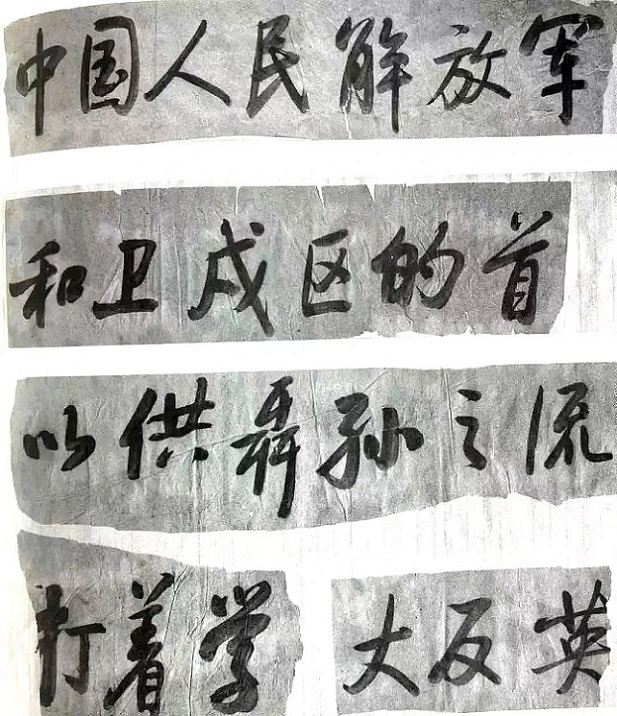 中国人民解放军
和卫戍区的首
以供聂孙之流
打着学 大反英